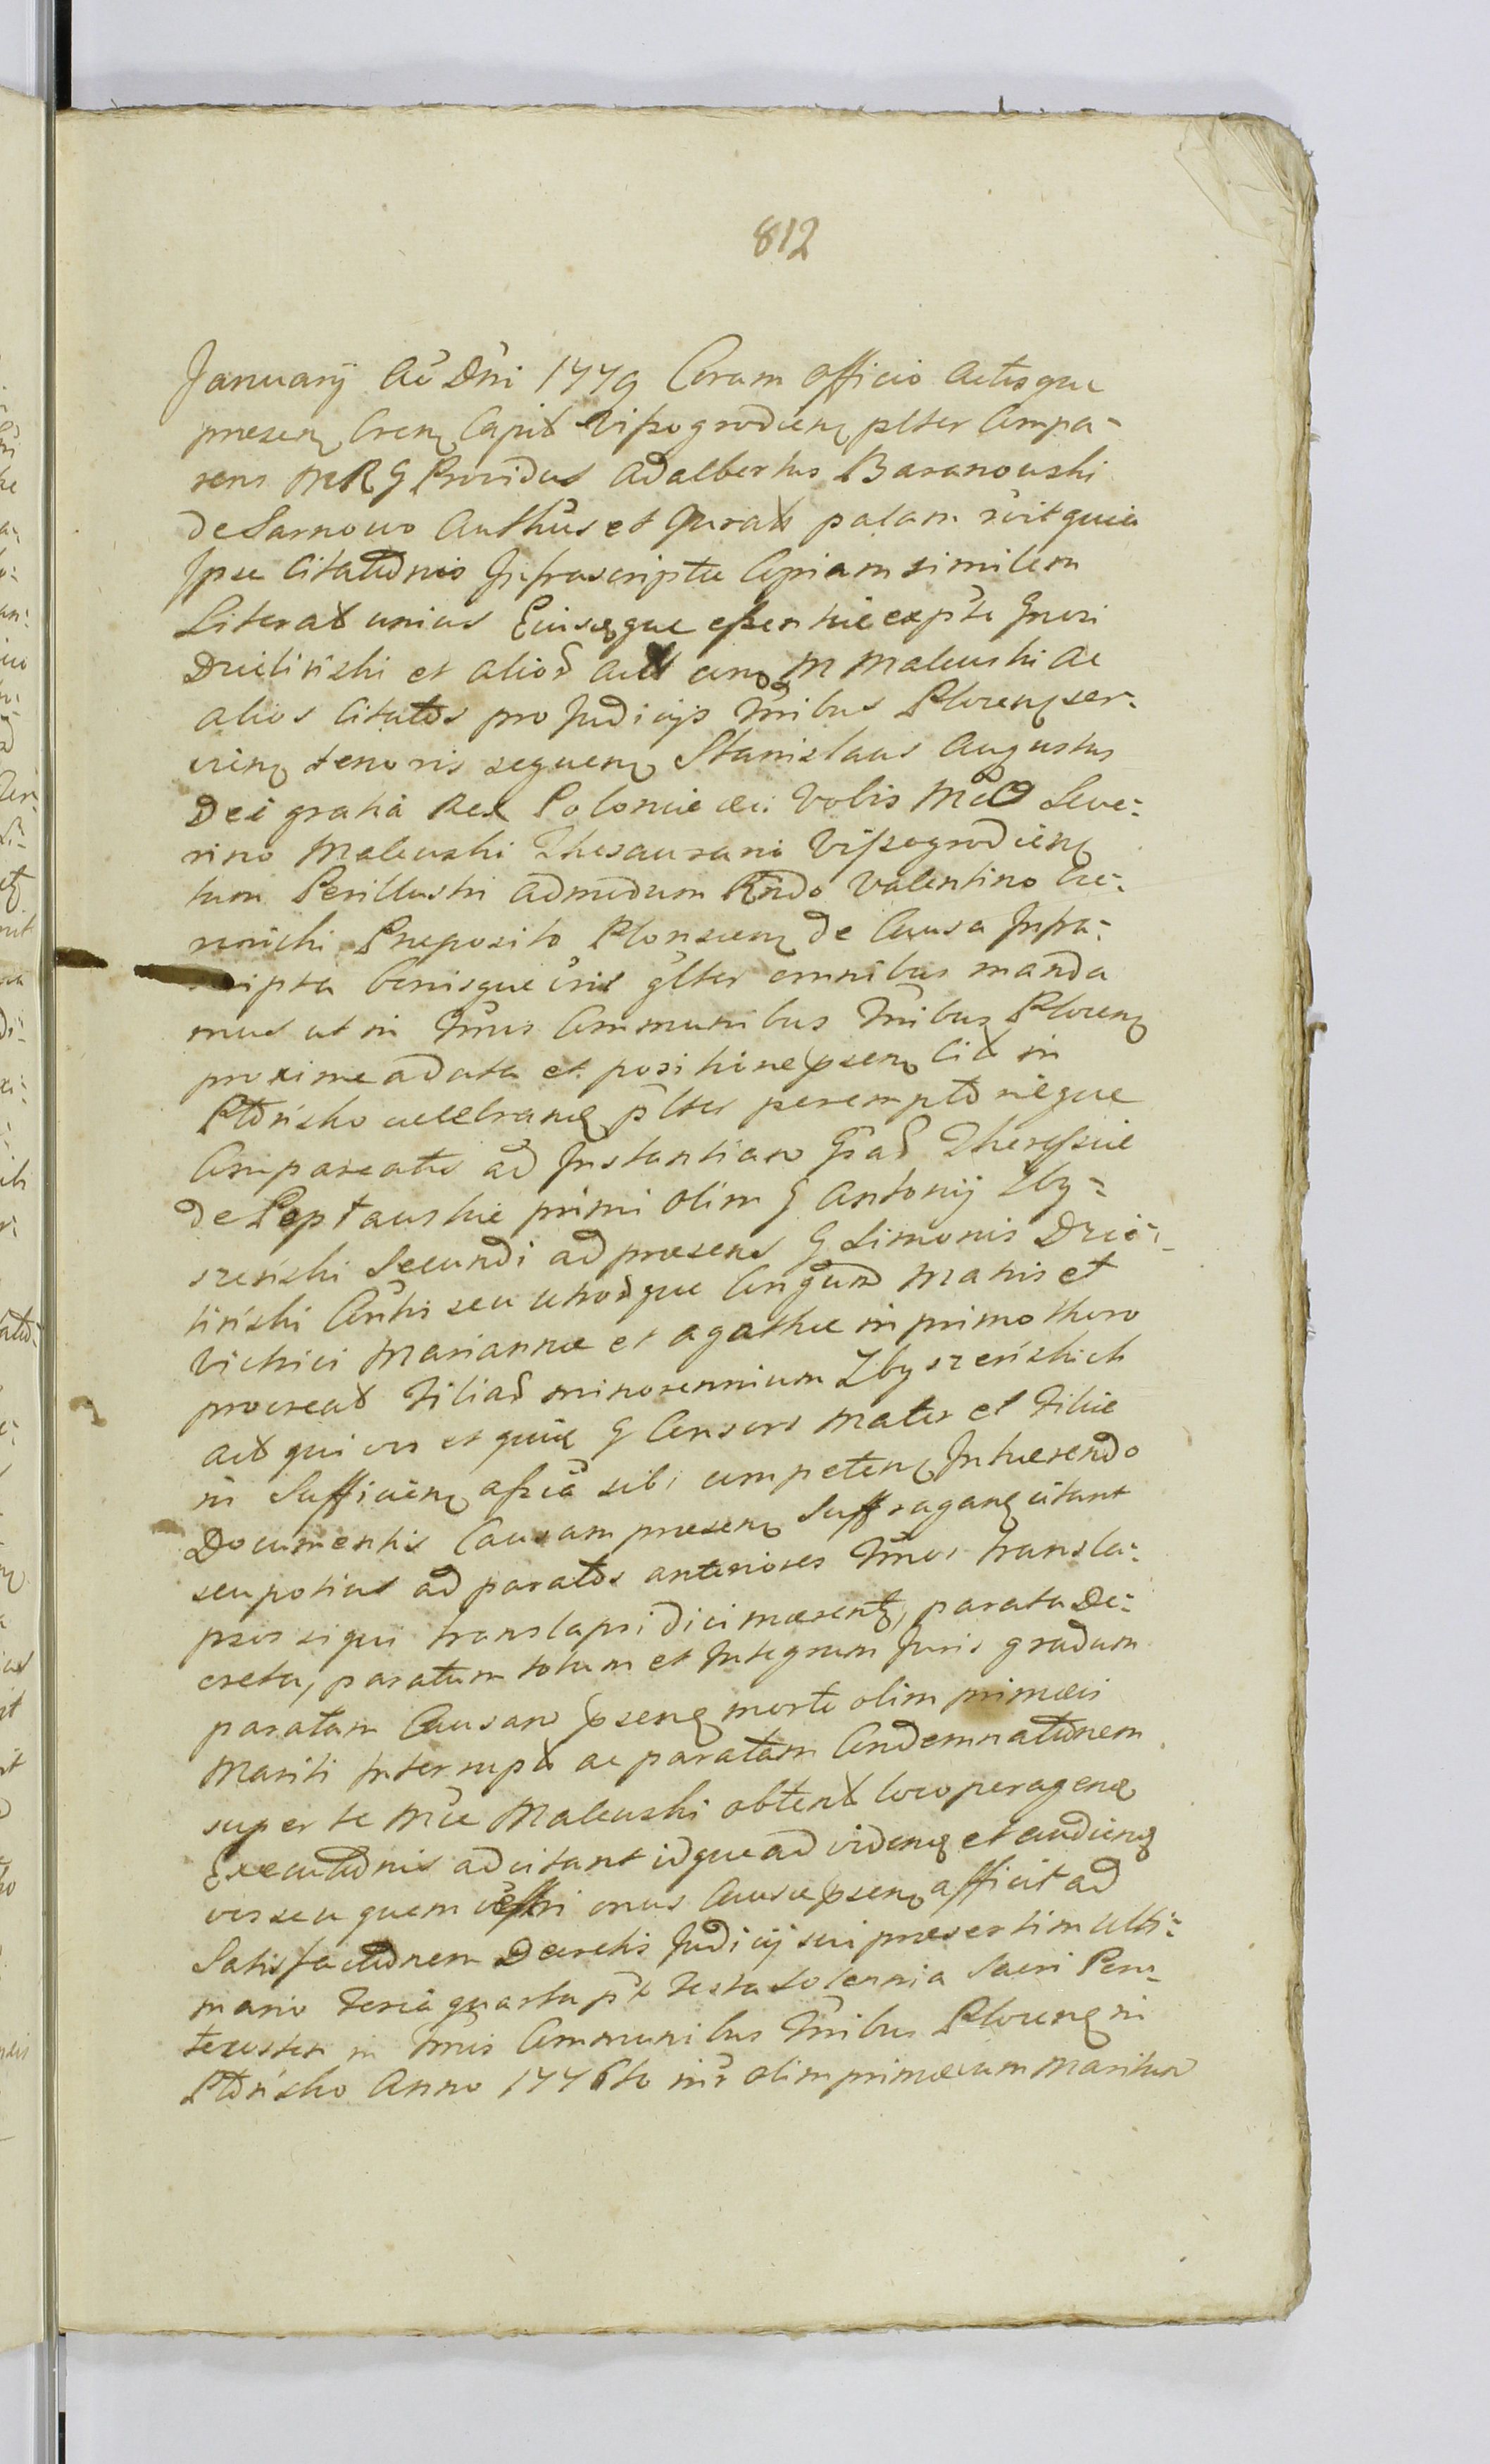 812
Januarij Aõ Dni 1779 Coram officio Actisque
presen Cren Capit Vissogrodien plter Compa-
rens MRG Providus Adalbertus Baranowski
de Sarnowo Authus et Jurat palam rvit quia
Ipse Citationis Infrascriptæ Copiam similem
Literat unius Eiusque essentiæ ex pte Gnosi
Dzielinski et alior Act cum M Malewski ac
alios Citatos pro Judicijs Tmibus Plocen ser-
vien tenoris sequen Stanislaus Augustus
Dei gratia Rex Poloniæ etc: Vobis Mco Seve-
rino Malewski Thesaurario Vissogrodien
tum Perillustri admodum Rndo Valentino
Præposito Plonscen de Causa Infra-
scripta bonisque vris glter omnibus manda
mus ut in Tmis Communibus Tmibus Plocen
proxime a data et positione psen Cit in
Płońsko celebran plter peremptorieque
Compareatis ad Instantiam Gsar Theressiæ
de primi olim G Antonij Zby-
szeński Secundi ad præsens G Simonis Dzie-
liński Cnthi seu utrorque Conjugum Matris et
Victrici Mariannæ et Agathæ in primo thoro
procreat Filiar minorennium Zbyszeńskich
Act qui vos et quia G Consors Mater et Filiæ
in Sufficien assia sibi competen Inhærendo
Documentis Causam præsen Suffragan citant
seu potius ad paratos anteriores Tmos transla-
psos siqui translapsi dici mærent, parata De-
creta, paratum totum et Integrum Juris gradum
paratam Causam psen morte olim primævi
Mariti Interrupt ac paratam Condemnationem
super te Mce Malewski obtent loco peragen
Executionis adcitant idque ad viden et audien
vos seu quem vestri onus Causæ psen afficit ad
Satisfactionem Decretis Judicij sui præsertim Ulti-
mario Feria quarta pt Festa Solennia Sacri Pen-
tecostes in Tmis Communibus Tmibus Plocen in
Płońsko Anno 1776to inr olim primævum Maritum